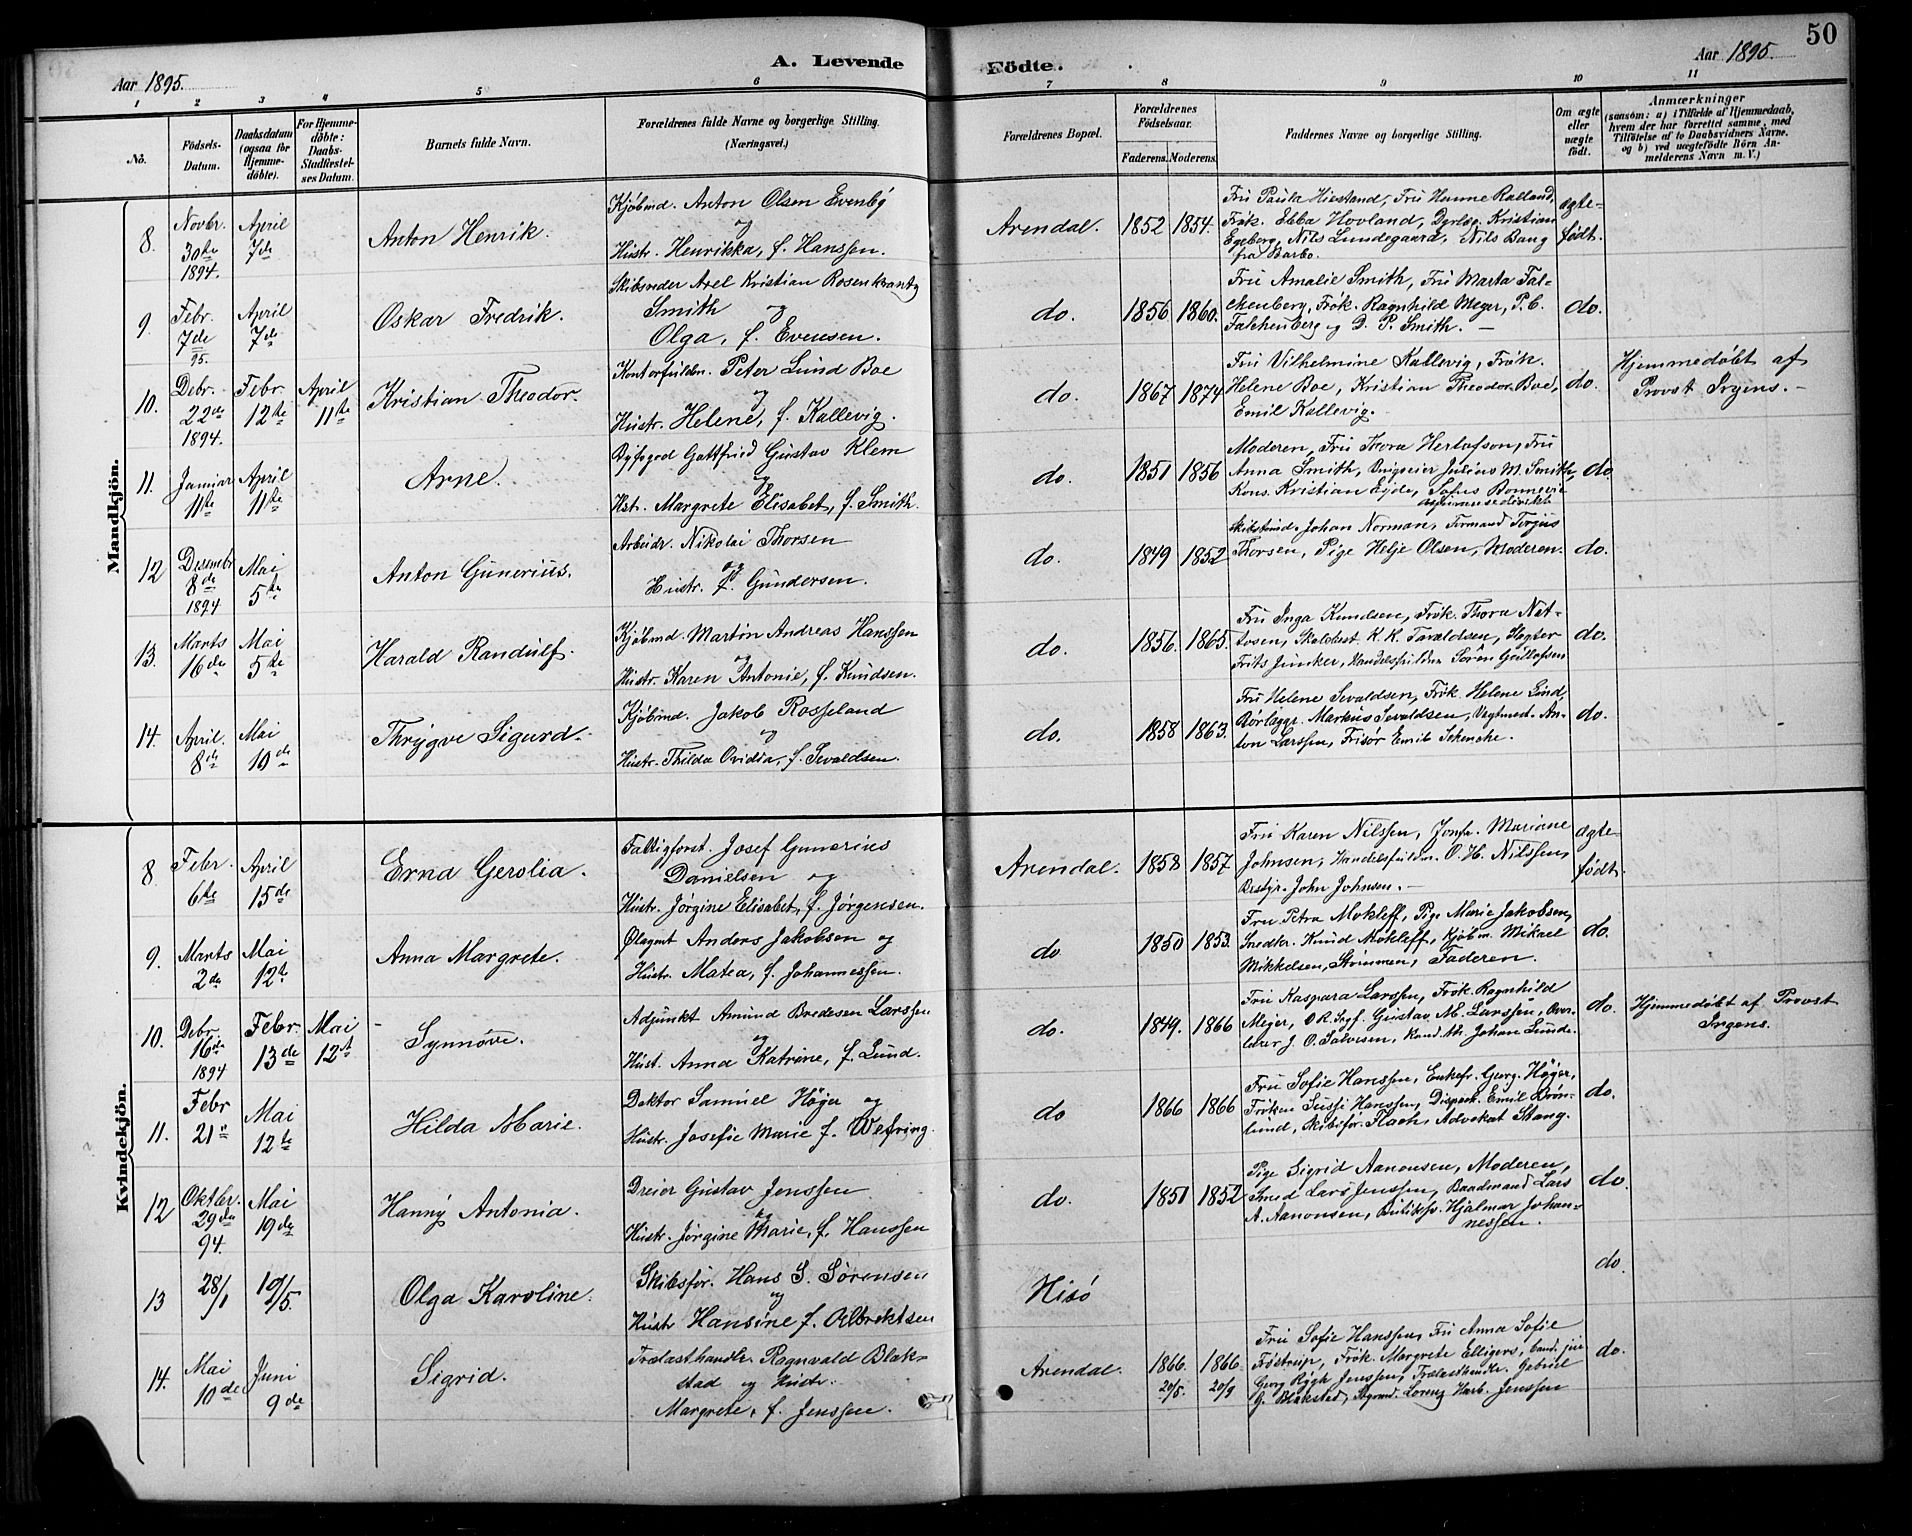 50
Aar 1895. A. Levende Födte. Aar 1895.
1 2 3 4 5 6 7 8 9 10 11
No.
Födsels-
Datum.
Daabsdatum
(ogsaa for
Hjemme-
döbte).
For Hjemme-
döbte:
Daabs-
Stadfæstel-
ses Datum.
Barnets fulde Navn.
Forældrenes fulde Navne og borgerlige Stilling.
(Næringsvei.)
Forældrenes Bopæl.
Forældrenes
Födselsaar.
Faderens. Moderens.
Faddernes Navne og borgerlige Stilling.
Om ægte
eller
uægte
født.
Anmærkninger
(saasom: a) i Tilfælde af Hjemmedaab,
hvem der har forrettet samme, med
Tilföielse af to Daabsvidners Navne,
og b) ved uægtefödte Börn An-
melderens Navn m. V.)
Mandkjön.
8.
Novbr.
30te
1894.
April
7de
Anton Henrik.
Kjøbmd. Anton Olsen Evenby
og
Hustr. Henrikka, f. Hanssen.
Arendal.
1852 1854.
Fru Paula Hiestand, Fru Hanne Ralland,
Frøk. Ebba Hovland, Kristian
Egeberg, Nils Lundegaard, Nils Bang
fra Barbo.
ægte-
født.
9.
Febr.
7de
95.
April
7de
Oskar Fredrik.
Skibsreder Axel Kristian Rosenkrantz
Smith og
Olga, f. Evensen.
do.
1856 1860.
Fru Amalie Smith, Fru Marta Fal-
chenberg, Frøk. Ragnhild Meyer, P. C.
Falchenberg og D. P. Smith. —
do.
10.
Debr.
22de
1894.
Febr.
12te
April
11te
Kristian Theodor.
Kontorfuldm. Peter Lund Boe
og
Hustr. Helene, f. Kallevig.
do.
1867 1874
Fru Vilhelmine Kallevig, Frøk.
Helene Boe, Kristian Theodor Boe,
Emil Kallevig. -
do.
Hjemmedøbt af
Provst Irgens. -
11.
Januar
11te
April
11te
Arne.
Byfogod Gottfried Gustav Klem
og
Hst. Margrete Elisabet, f. Smith.
do.
1851 1856
Moderen, Fru Thora Herlofson, Fru
Anna Smith, Julius M. Smith,
Kons. Kristian Eyde, Sofus Bonnevie
do.
12
Desembr
8de
1894
Mai
5te
Anton Gunerius.
Arbeidr. Nikolai Thorsen
og
Hustr. f. Gundersen.
do.
1849 1852
Skibstmd. Johan Norman, Tormand Torjus
Thorsen, Pige Helje Olsen, Moderen.
do.
13.
Marts
16de
Mai
5te
Harald Randulf.
Kjøbmd. Martin Andreas Hanssen
og
Hustr. Karen Antonie, f. Knudsen.
do.
1856. 1865.
Fru Inga Knudsen, Frøk. Thora Nat-
Skolebest. K. K. Tavaldsen,
Frits Junker, Handelsfuldm. Søren
do.
14.
April.
8de
Mai
10de
Thrygve Sigurd.
Kjøbmd. Jakob Rosseland
og
Hustr. Thilda Ovidia, f. Sevaldsen.
do.
1858 1863.
Fru Helene Sevaldsen, Frøk. Helene Lind,
Rørlæggr. Markus Sevaldsen, Vagtmed. An-
ton Larssen, Frisør Emil
do.
Kvindekjön.
8.
Febr.
6te
April
15de
Erna Gerolia.
Fattigforst. Josef Gunerius
Danielsen og
Hustr. Jørgine Elisabet, f. Jørgensen.
Arendal.
1858 1857
Fru Karen Nilssen, Jomfr. Mariane
Johnsen, Handelsfuldm. O. H. Nilssen,
Bestyr. John Johnsen. -
ægte-
født.
9.
Marts
2de
Mai
12te
Anna Margrete.
Ølagent Anders Jakobsen og
Hustr. Matea, f. Johannessen.
do
1850 1853.
Fru Petra Mokleff, Pige Marie Jakobsen,
Snedkr. Knud Mokleff, Kjøbm. Mikael
Mikkelsen, Strømmen, Faderen.
do.
10.
Debr.
16de
1894
Febr.
13de
Mai
12te
Synnøve.
Adjunkt Amund Bredesen Larssen
og
Hust. Anna Katrine, f. Lund.
do.
1849. 1866
Fru Kaspara Larssen, Frøk. Ragnhild
Meyer, Gustav M. Larssen, Over-
lærer J. O. Salvesen, Kand. th. Johan Lund.
do.
Hjemmedøbt af Provst
Irgens.
11.
Febr
21de
Mai
12te
Hilda Marie.
Doktor Samuel Høyer og
Hustr. Josefie Marie f. Wefring.
do
1866 1866
Fru Sofie Hanssen, Enkefr. Georg. Høyer,
Frøken Sussi Hanssen, Dispach. Emil Brøm-
lund, Skibsfør. Flach, Advokat Stang.
do.
12
Oktbr.
29de
94.
Mai
19de
Hanny Antonia.
Dreier Gustav Jenssen
og
Hustr. Jørgine Marie, f. Hanssen
do.
1851 1852
Pige Sigrid Aanonsen, Moderen,
Smed Lars Jenssen, Baadmand Lars
A. Aanonsen, Hjalmar Johan-
nessen.
do.
13
28/1
19/5.
Olga Karoline.
Skibsfør. Hans S. Sørensen
og
Hustr Hansine f. Albrektsen
Hisø
do.
14.
Mai
10de
Juni
9de
Sigrid.
Trælasthandlr. Ragnvald Blak-
stad og Hustr.
Margrete, f. Jenssen.
Arendal.
1866. 1866
20/5. 20/9
Fru Sofie Hanssen, Fru Anna Sofie
Frøstrup, Frøk. Margrete Elligers, Cand. jur
Georg Rygh Jenssen, Trælasthandlr. Gabriel
G. Blakstad, Lorenz Jenssen
do.